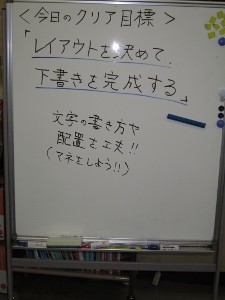 ＜今日のクリア目標＞
「レイアウトを決めて、
下書きを完成する」
文字の書き方や
配置を工夫!!
(マネをしよう!!)